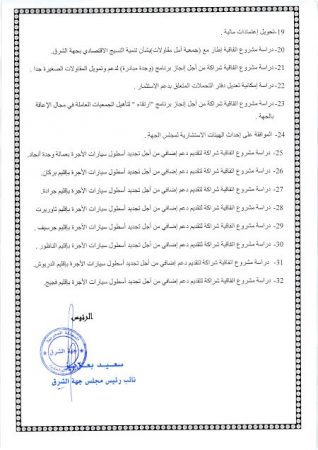 19- تحويل إعتمادات مالية .
20- دراسة مشروع اتفاقية إطار مع (جمعية أمل مقاولات)بشأن تنمية النسيج الاقتصادي بجهة الشرق.
21- دراسة مشروع اتفاقية شراكة من أجل إنجاز برنامج (وحدة مبادرة) لدعم وتمويل المقاولات الصغيرة جدا .
22- دراسة إمكانية تعديل دفتر التحملات المتعلق بدعم الاستثمار .
23- دراسة مشروع اتفاقية شراكة من أجل إنجاز برنامج "ارتقاء " لتأهيل الجمعيات العاملة في مجال الإعاقة
بالجهة .
24- الموافقة على إحداث الهيئات الاستشارية لمجلس الجهة.
25- دراسة مشروع اتفاقية شراكة لتقديم دعم إضافي من أجل تجديد أسطول سيارات الأجرة بعمالة وجدة أنجاد.
26- دراسة مشروع اتفاقية شراكة لتقديم دعم إضافي من أجل تجديد أسطول سيارات الأجرة بإقليم بركان.
27- دراسة مشروع اتفاقية شراكة لتقديم دعم إضافي من أجل تجديد أسطول سيارات الأجرة بإقليم جرادة.
28- دراسة مشروع اتفاقية شراكة لتقديم دعم إضافي من أجل تجديد أسطول سيارات الأجرة بإقليم تاوريرت
29- دراسة مشروع اتفاقية شراكة لتقديم دعم إضافي من أجل تجديد أسطول سيارات الأجرة بإقليم جرسيف .
30- دراسة مشروع اتفاقية شراكة لتقديم دعم إضافي من أجل تجديد أسطول سيارات الأجرة بإقليم الناظور .
31- دراسة مشروع اتفاقية شراكة لتقديم دعم إضافي من أجل تجديد أسطول سيارات الأجرة بإقليم الدريوش.
32- دراسة مشروع اتفاقية شراكة لتقديم دعم إضافي من أجل تجديد أسطول سيارات الأجرة بإقليم فجيج.
الرئيس
جهة الشرق
سعيد
نائب رئيس مجلس جهة الشرق